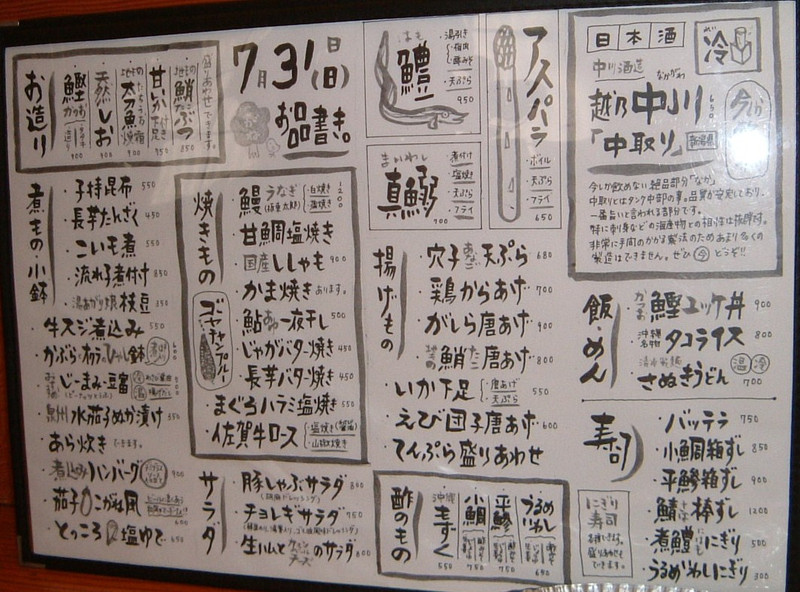 お造り
鰹
かつお
造り
900
天然しお
900
太刀魚
900
甘いか
下足
950
鮹ぶつ
850
盛りあわせできます。
7月31日(日)
お品書き。
はも
鱧
湯引き
梅肉
天ぷら
950
まいわし
真鰯
煮付け
塩焼き
天ぷら
フライ
900
アスパラ
ボイル
天ぷら
フライ
650
日本酒
冷
中川酒造
なかがわ
越乃中川
「中取り」
新潟県
650
今しか飲めない絶品部分「なか」
中取りとはタンク中部の事。品質が安定しており、
一番いいと言われる部分です。
特に刺身などの海産物との相性は抜群です。
非常に手間のかかる製法のためあまり多くの
製造はできません。ぜひ今どうぞ!!
煮もの・小鉢
・子持昆布 550
・長芋たんざく 450
・こいも煮 550
・流れ子煮付け 850
・湯あがり 枝豆 350
・牛スジ煮込み 550
・かぶら・オクラ ひやし鉢 600
・じーまみー豆腐
・泉州水茄子ぬか漬け 550
・あら炊き できます。
・煮込みハンバーグ 900
・茄子こがね風 600
・とっころ塩ゆで 650
焼きもの
・鰻 うなぎ 白焼き 蒲焼き 1200
・甘鯛塩焼き
・国産ししゃも 900
・かま焼き あります。
・鮎 あゆ 一夜干し 500
・じゃがバター焼き 450
・長芋バター焼き 450
・まぐろハラミ塩焼き 650
・佐賀牛ロース
ゴーヤチャンプルー
サラダ
・豚しゃぶサラダ 800
(胡麻ドレッシング)
・チョレギサラダ 750
・生ハムとチーズのサラダ 800
揚げもの
・穴子 あなご 天ぷら 680
・鶏からあげ 700
・がしら唐あげ 900
・地もの 鮹 たこ 唐あげ 800
・いか下足 唐あげ 天ぷら 550
・えび団子唐あげ 600
・てんぷら盛りあわせ
酢のもの
沖縄
もずく
550
小鯛
750
平鯵
750
うるめいわし
650
飯・めん
・かつおの 鰹ユッケ丼 900
・沖縄名物 タコライス 800
・さぬきうどん 温 冷 700
寿司
・バッテラ 750
・小鯛箱ずし 850
・平鯵箱ずし 900
・鯖 さば 棒ずし 1200
・煮鱧にぎり 500
・うるめいわしにぎり 300
にぎり
寿司
お造りねたで
盛り合わせも
できます。